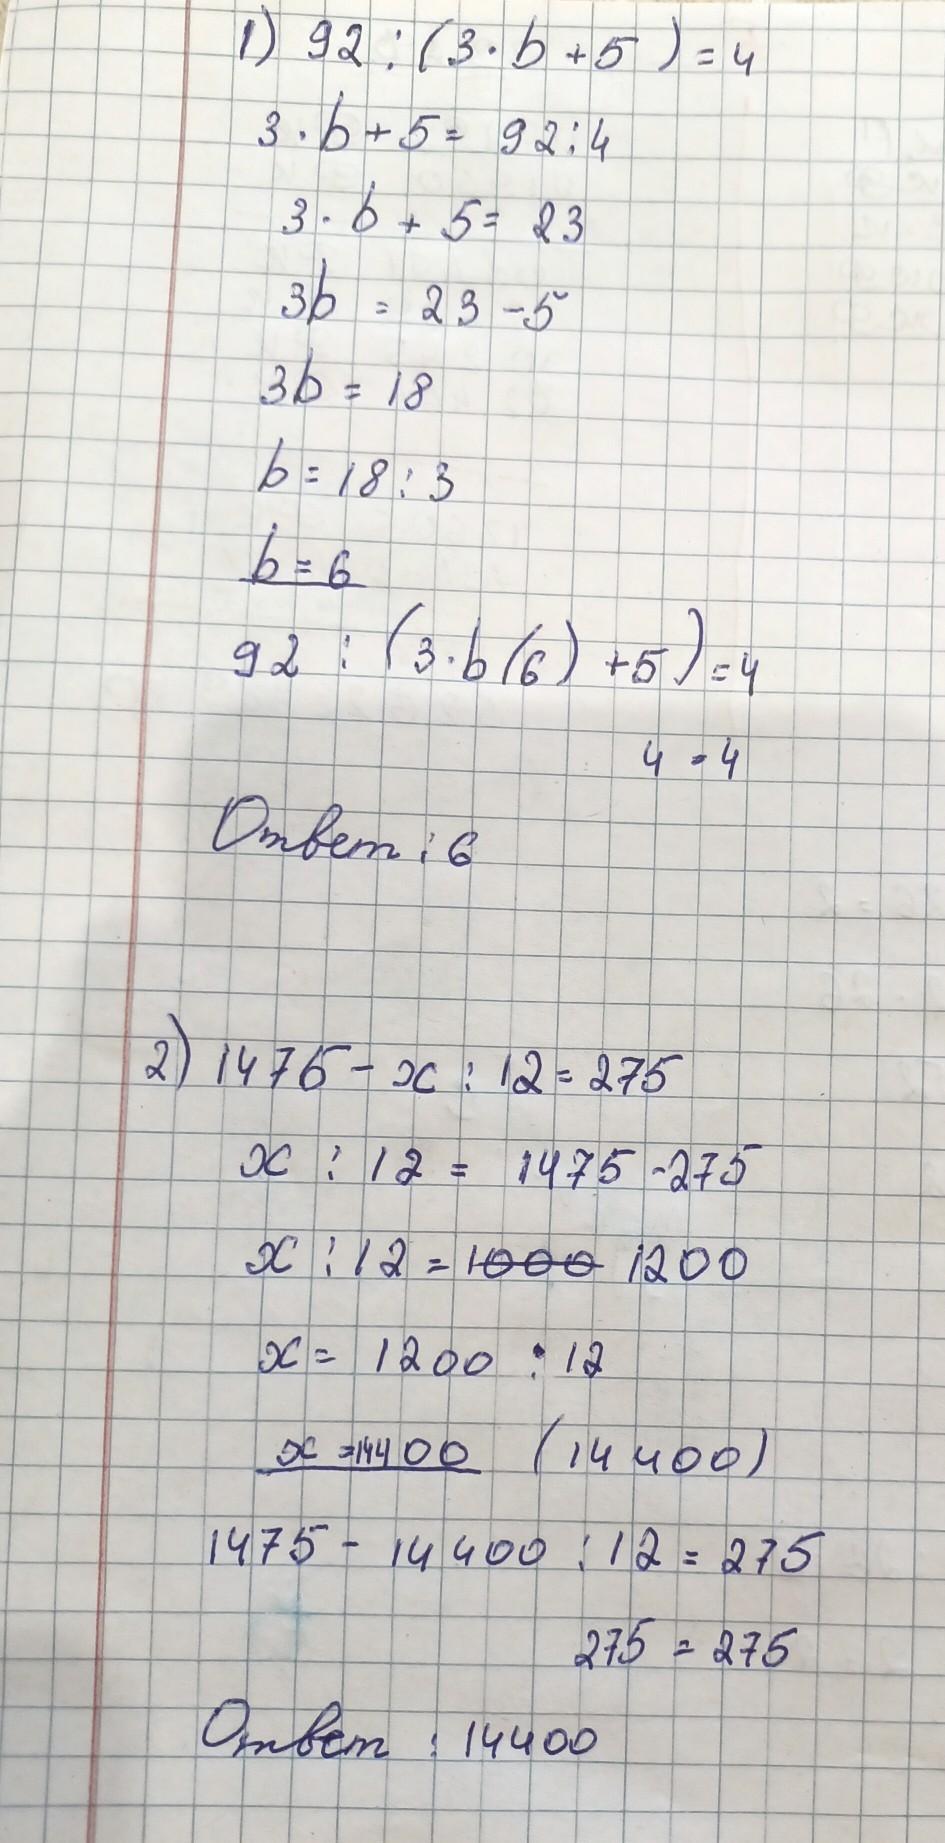 1) 92 : (3 · b + 5) = 4
3 · b + 5 = 92 : 4
3 · b + 5 = 23
3b = 23 - 5
3b = 18
b = 18 : 3
b = 6
92 : (3 · b (6) + 5) = 4
4 = 4
Ответ : 6
2) 1475 - x : 12 = 275
x : 12 = 1475 - 275
x : 12 = 1000 1200
x = 1200 : 12
x = 14400 (14400)
1475 - 14400 : 12 = 275
275 = 275
Ответ : 14400